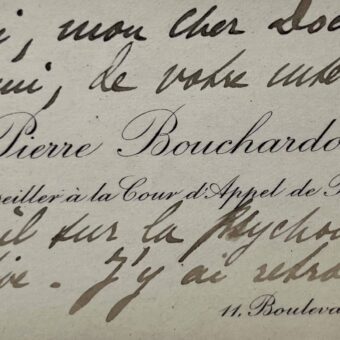 mon cher Doc
de votre inte
Pierre Bouchardo
eiller à la Cour d'Appel de P
il sur la Psycho
J'y ai retro
11, Bouleva